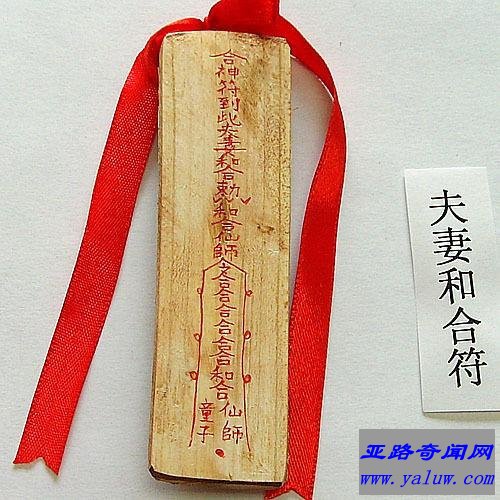 合神符到此夫妻和合勅和合仙師
合合合合合合和合
仙師
童子
夫妻和合符
亚路奇闻网
www.yaluw.com